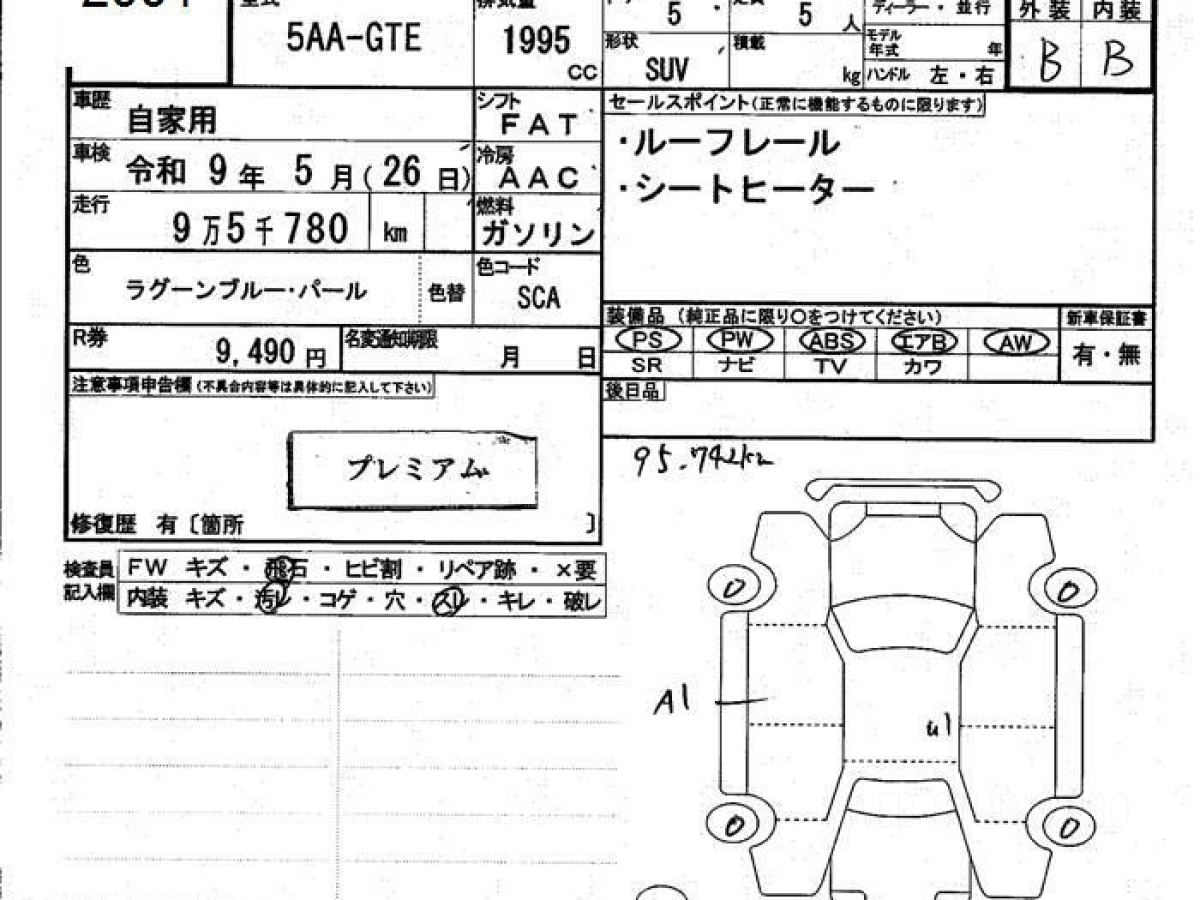 5AA-GTE
1995
CC
5
5
人
ディーラー・並行
外装 内装
形状
SUV
積載
kg
モデル
年式
年
ハンドル 左・右
B
B
車歴
自家用
シフト
FAT
車検
令和 9年 5月(26日)
冷房
AAC
走行
9万5千780 km
燃料
ガソリン
色
ラグーンブルー・パール
色替
色コード
SCA
R券
9,490円
名変通知期限
月 日
注意事項申告欄(不具合内容等は具体的に記入して下さい)
プレミアム
修復歴 有〔箇所 〕
セールスポイント(正常に機能するものに限ります)
・ルーフレール
・シートヒーター
装備品 (純正品に限り○をつけてください)
新車保証書
PS PW ABS エアB AW
有・無
SR ナビ TV カワ
後日品
95.742km
検査員
記入欄
FW キズ・飛石・ヒビ割・リペア跡・×要
内装 キズ・汚レ・コゲ・穴・スレ・キレ・破レ
0
0
A1
u1
0
0